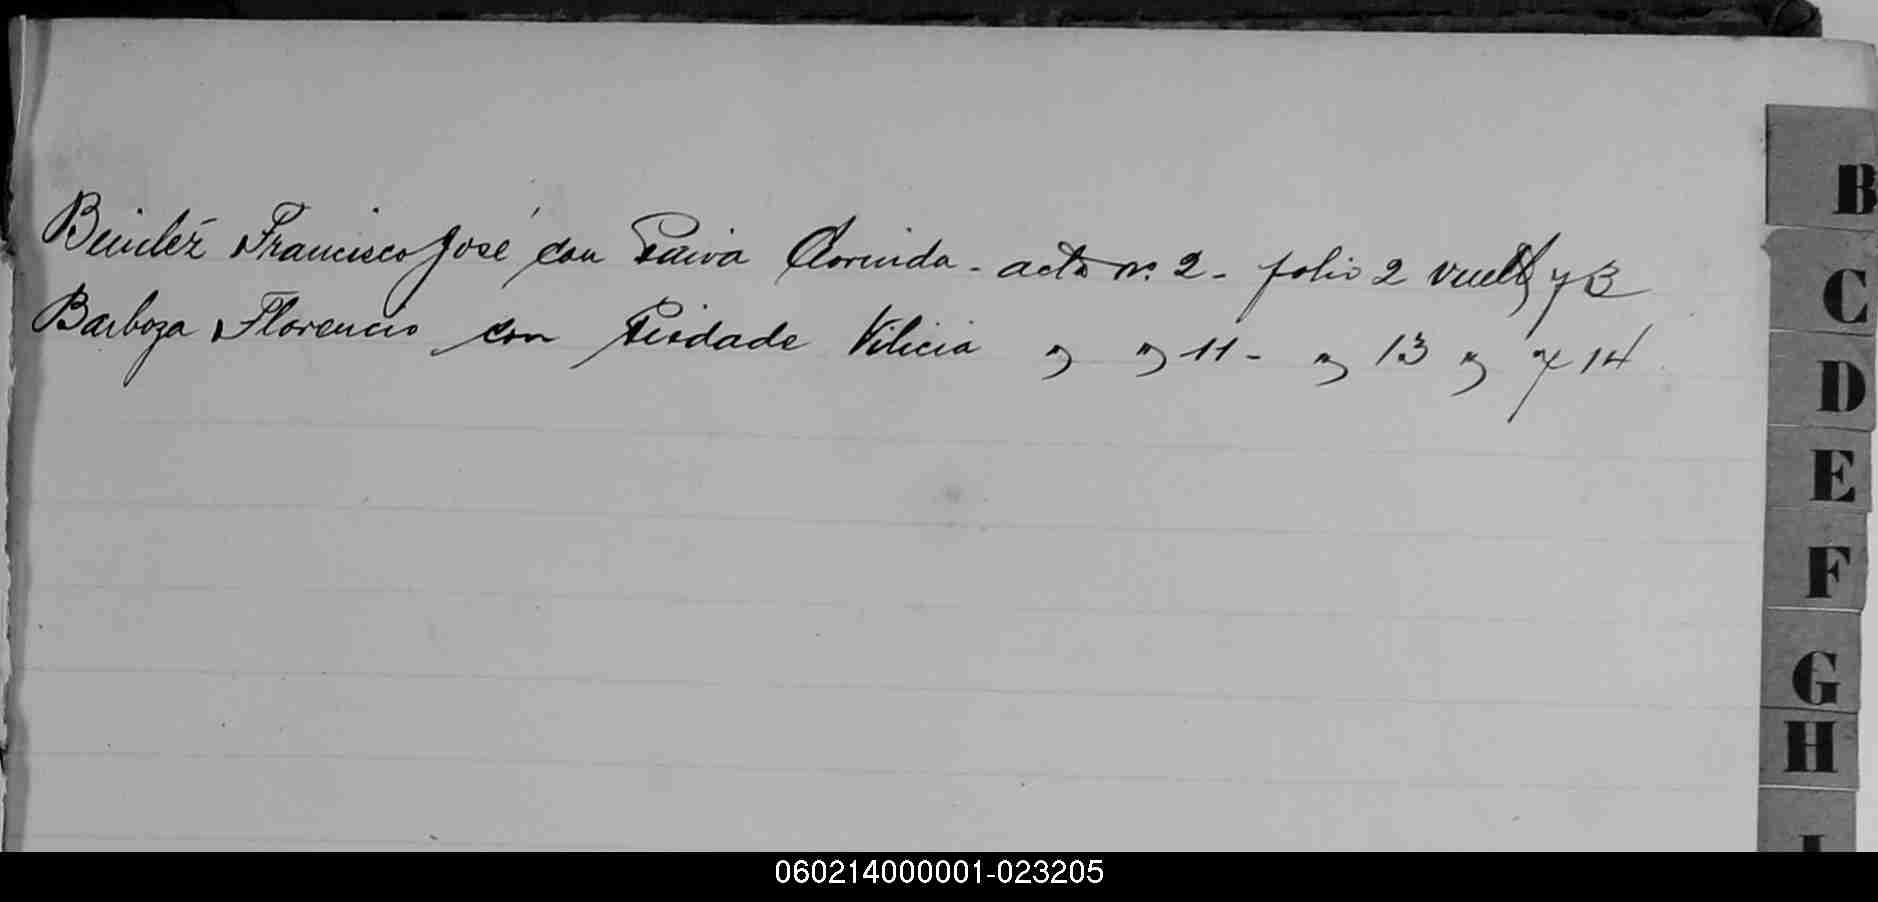 Benitez Francisco José con Paiva Clorinda - acta no. 2 - folio 2 vuelto y 3
Barboza Florencio con Piedade Vilicia " " 11 - " 13 " y 14
B
C
D
E
F
G
H
I
060214000001-023205